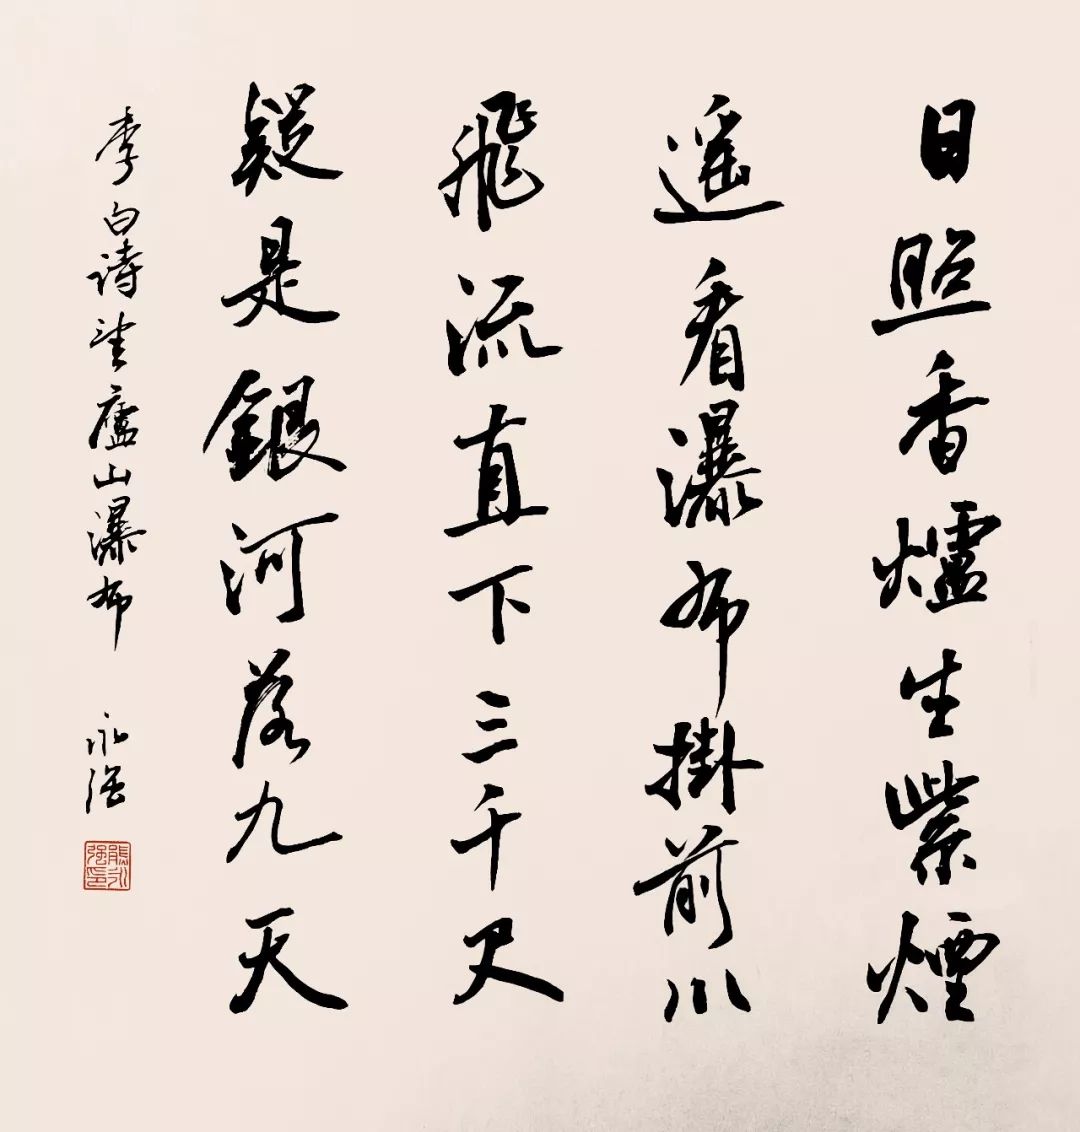 日照香爐生紫煙
遥看瀑布掛前川
飛流直下三千尺
疑是銀河落九天
李白诗望廬山瀑布 永强
永强印